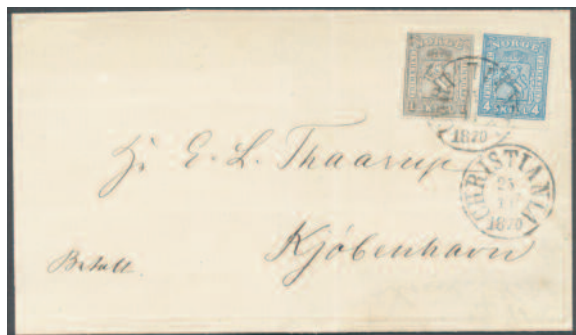 NORGE NORGE
4 4
1870
CHRISTIANIA
25
1870
E. L. Thaarup
Kjöbenhavn
Betalt.